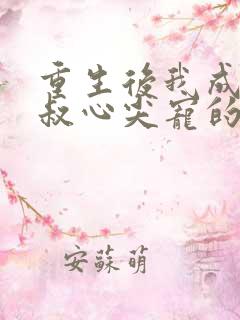 重生後我成
叔心尖寵的
安蘇萌